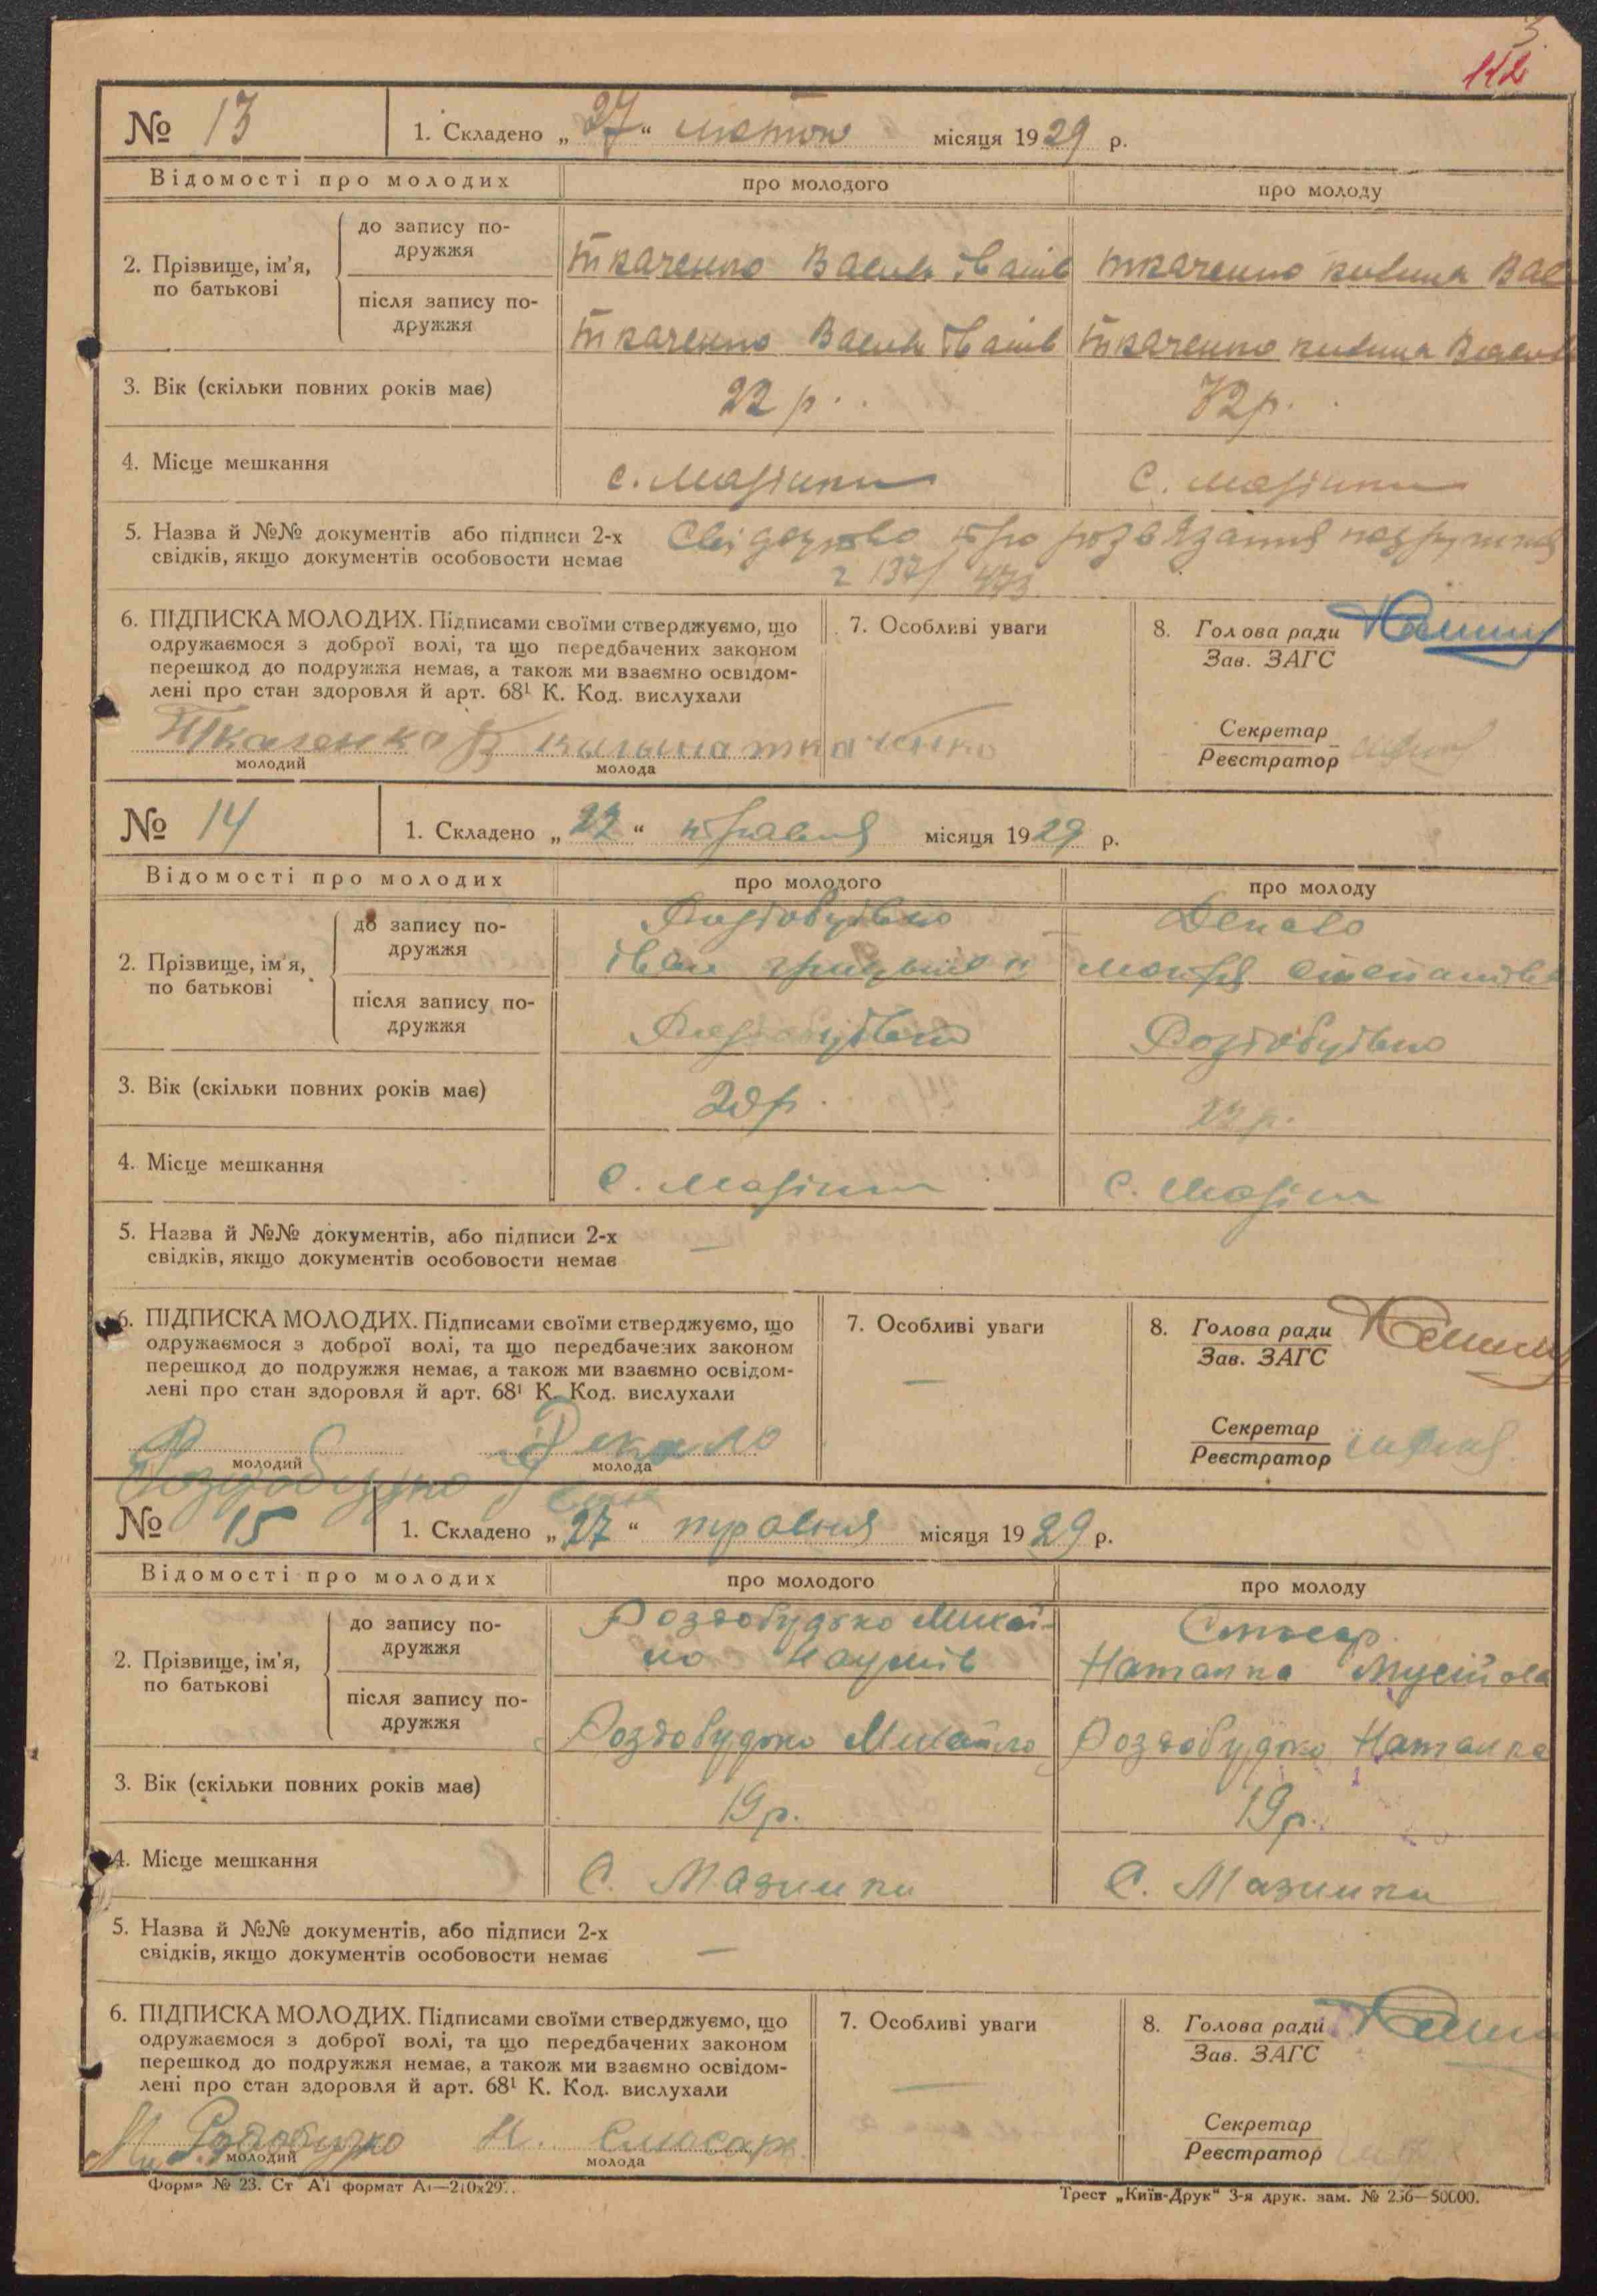 3
112
№ 13
1. Складено „ 27 “ лютого місяця 1929 р.
Відомості про молодих
про молодого
про молоду
2. Прізвище, ім’я, по батькові
до запису по-
дружжя
Ткаченко Василь Іванів
Ткаченко Килина Вас
після запису по-
дружжя
Ткаченко Василь Іванів
Ткаченко Килина Василів
3. Вік (скільки повних років має)
22 р.
р.
4. Місце мешкання
с. Мазінки
с. Мазінки
5. Назва й №№ документів або підписи 2-х
свідків, якщо документів особовости немає
Свідоцтво про розвязання подружжя
6. ПІДПИСКА МОЛОДИХ. Підписами своїми стверджуємо, що
одружаємося з доброї волі, та що передбачених законом
перешкод до подружжя немає, а також ми взаємно освідом-
лені про стан здоровля й арт. 68¹ К. Код. вислухали
Ткаченко В
ткаченко
молодий
молода
7. Особливі уваги
8. Голова ради
Зав. ЗАГС
Секретар
Реєстратор
№ 14
1. Складено „ 22 “ травня місяця 1929 р.
Відомості про молодих
про молодого
про молоду
2. Прізвище, ім’я,
по батькові
до запису по-
дружжя
Роздобудько
Іван
Декало
Мотря Степанівна
після запису по-
дружжя
Роздобудько
Роздобудько
3. Вік (скільки повних років має)
р.
р.
4. Місце мешкання
с. Мазінки
с. Мазінк
5. Назва й №№ документів, або підписи 2-х
свідків, якщо документів особовости немає
—
6. ПІДПИСКА МОЛОДИХ. Підписами своїми стверджуємо, що
одружаємося з доброї волі, та що передбачених законом
перешкод до подружжя немає, а також ми взаємно освідом-
лені про стан здоровля й арт. 68¹ К. Код. вислухали
Декало
молодий
молода
Роздобудько
7. Особливі уваги
—
8. Голова ради
Зав. ЗАГС
Секретар
Реєстратор
№ 15
1. Складено „ 27 “ травня місяця 1929 р.
Відомості про молодих
про молодого
про молоду
2. Прізвище, ім’я,
по батькові
до запису по-
дружжя
Роздобудько Михай-
ло Наумів
Слюсар
Наталка Мусійова
після запису по-
дружжя
Роздобудько Михайло
Роздобудько Наталка
3. Вік (скільки повних років має)
19 р.
19 р.
4. Місце мешкання
С. Мазинки
С. Мазинки
5. Назва й №№ документів, або підписи 2-х
свідків, якщо документів особовости немає
—
6. ПІДПИСКА МОЛОДИХ. Підписами своїми стверджуємо, що
одружаємося з доброї волі, та що передбачених законом
перешкод до подружжя немає, а також ми взаємно освідом-
лені про стан здоровля й арт. 68¹ К. Код. вислухали
М. Роздобудко
Н. Слюсарж
молодий
молода
7. Особливі уваги
—
8. Голова ради
Зав. ЗАГС
Секретар
Реєстратор
Форма № 23. Ст А1 формат А₄—210х297.
Трест „Київ-Друк“ 3-я друк. зам. № 256—50000.